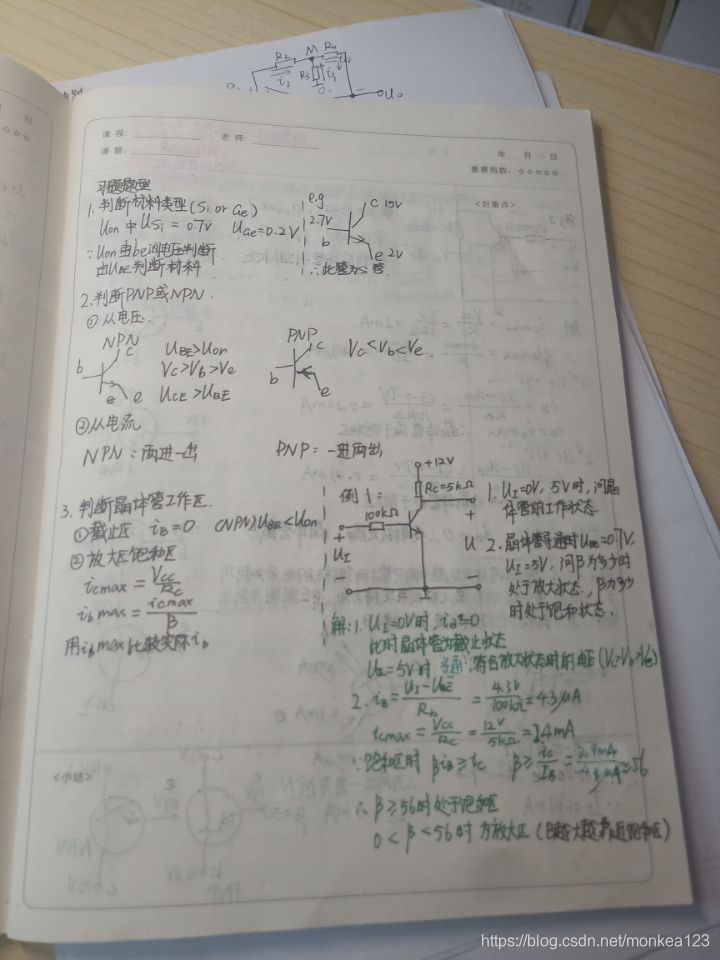 R2 M R4
i2 R3 i3 i4
U0
课程:
老师:
课题:
年 月 日
重要指数: ☆☆☆☆☆
习题题型
<划重点>
1.判断材料类型(Si or Ge)
Uon中USi=0.7V UGe=0.2V
∵Uon由be间电压判断
由UBE判断材料
e.g
2.7V
b
C 10V
e 2V
∴此管为Si管
2.判断PNP或NPN.
①从电压.
NPN
b
c
e
UBE>Uon
Vc>Vb>Ve
UCE>UBE
PNP
b
c
e
Vc<Vb<Ve.
②从电流
NPN:两进一出
PNP:一进两出
3.判断晶体管工作区.
①截止区 iB=0 (NPN)UBE<Uon
②放大区饱和区
icmax=Vcc/Rc
ibmax=icmax/β
用ibmax比较实际ib
例1:
+12V
Rc=5kΩ
100kΩ
+
UI
-
+
U
-
1.UI=0V,5V时,问晶
体管的工作状态
2.晶体管导通时UBE=0.7V.
UI=5V,问β为多少时
处于放大状态,β为多少
时处于饱和状态.
解:1.UI=0V时,iB=0
此时晶体管为截止状态
UI=5V时 导通,符合放大状态时的电压(Vc>Vb>Ve)
2.iB=(UI-UBE)/Rb=4.3V/100kΩ=43μA
icmax=Vcc/Rc=12V/5kΩ=2.4mA
∵饱和区时 βiB≥ic β≥ic/IB=2.4mA/43μA≈56
∴β≥56时处于饱和区
0<β<56时为放大区(β越大越靠近饱和区)
<小结>
https://blog.csdn.net/monkea123